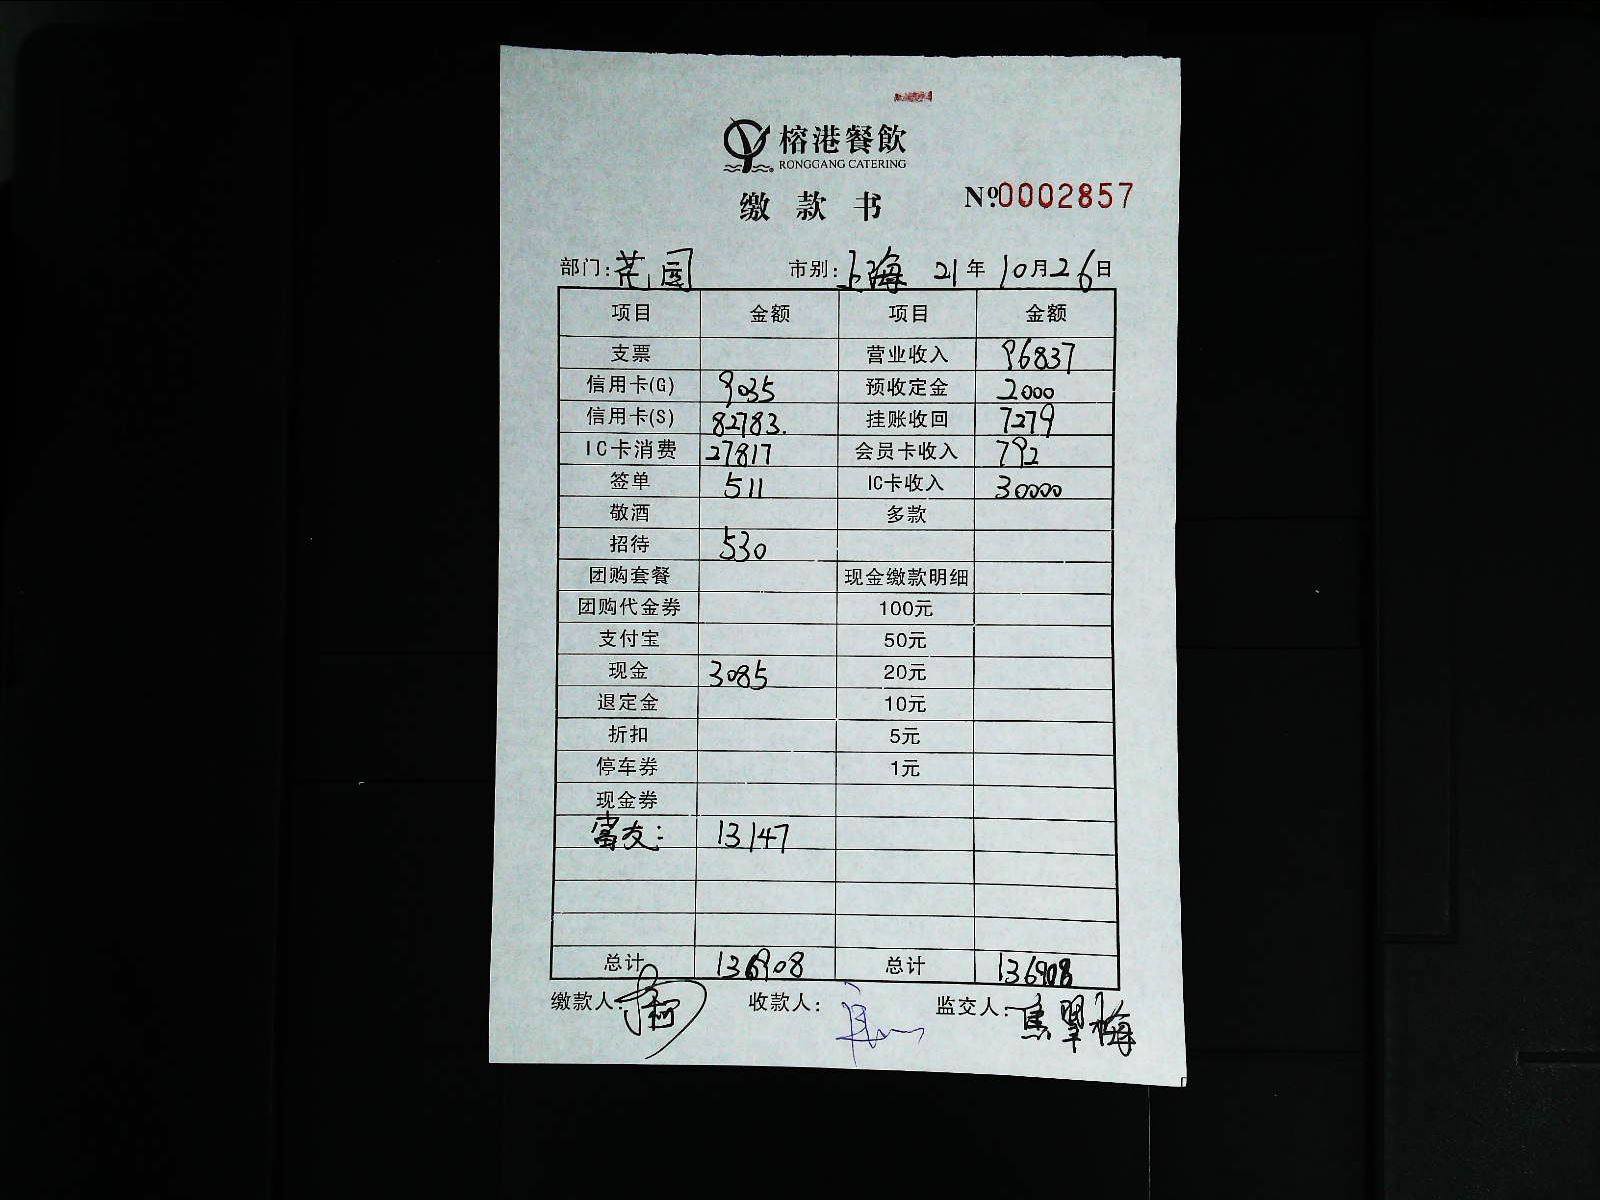 榕港餐飲
RONGGANG CATERING
缴款书 №0002857
部门:花园 市别:上海 21年10月26日
项目 金额 项目 金额
支票 营业收入 96837
信用卡(G) 9035 预收定金 2000
信用卡(S) 82783. 挂账收回 7279
IC卡消费 27817 会员卡收入 792
签单 511 IC卡收入 30000
敬酒 多款
招待 530
团购套餐 现金缴款明细
团购代金券 100元
支付宝 50元
现金 3085 20元
退定金 10元
折扣 5元
停车券 1元
现金券
富友: 13147
总计 136908 总计 136908
缴款人: 收款人: 监交人:焦翠梅